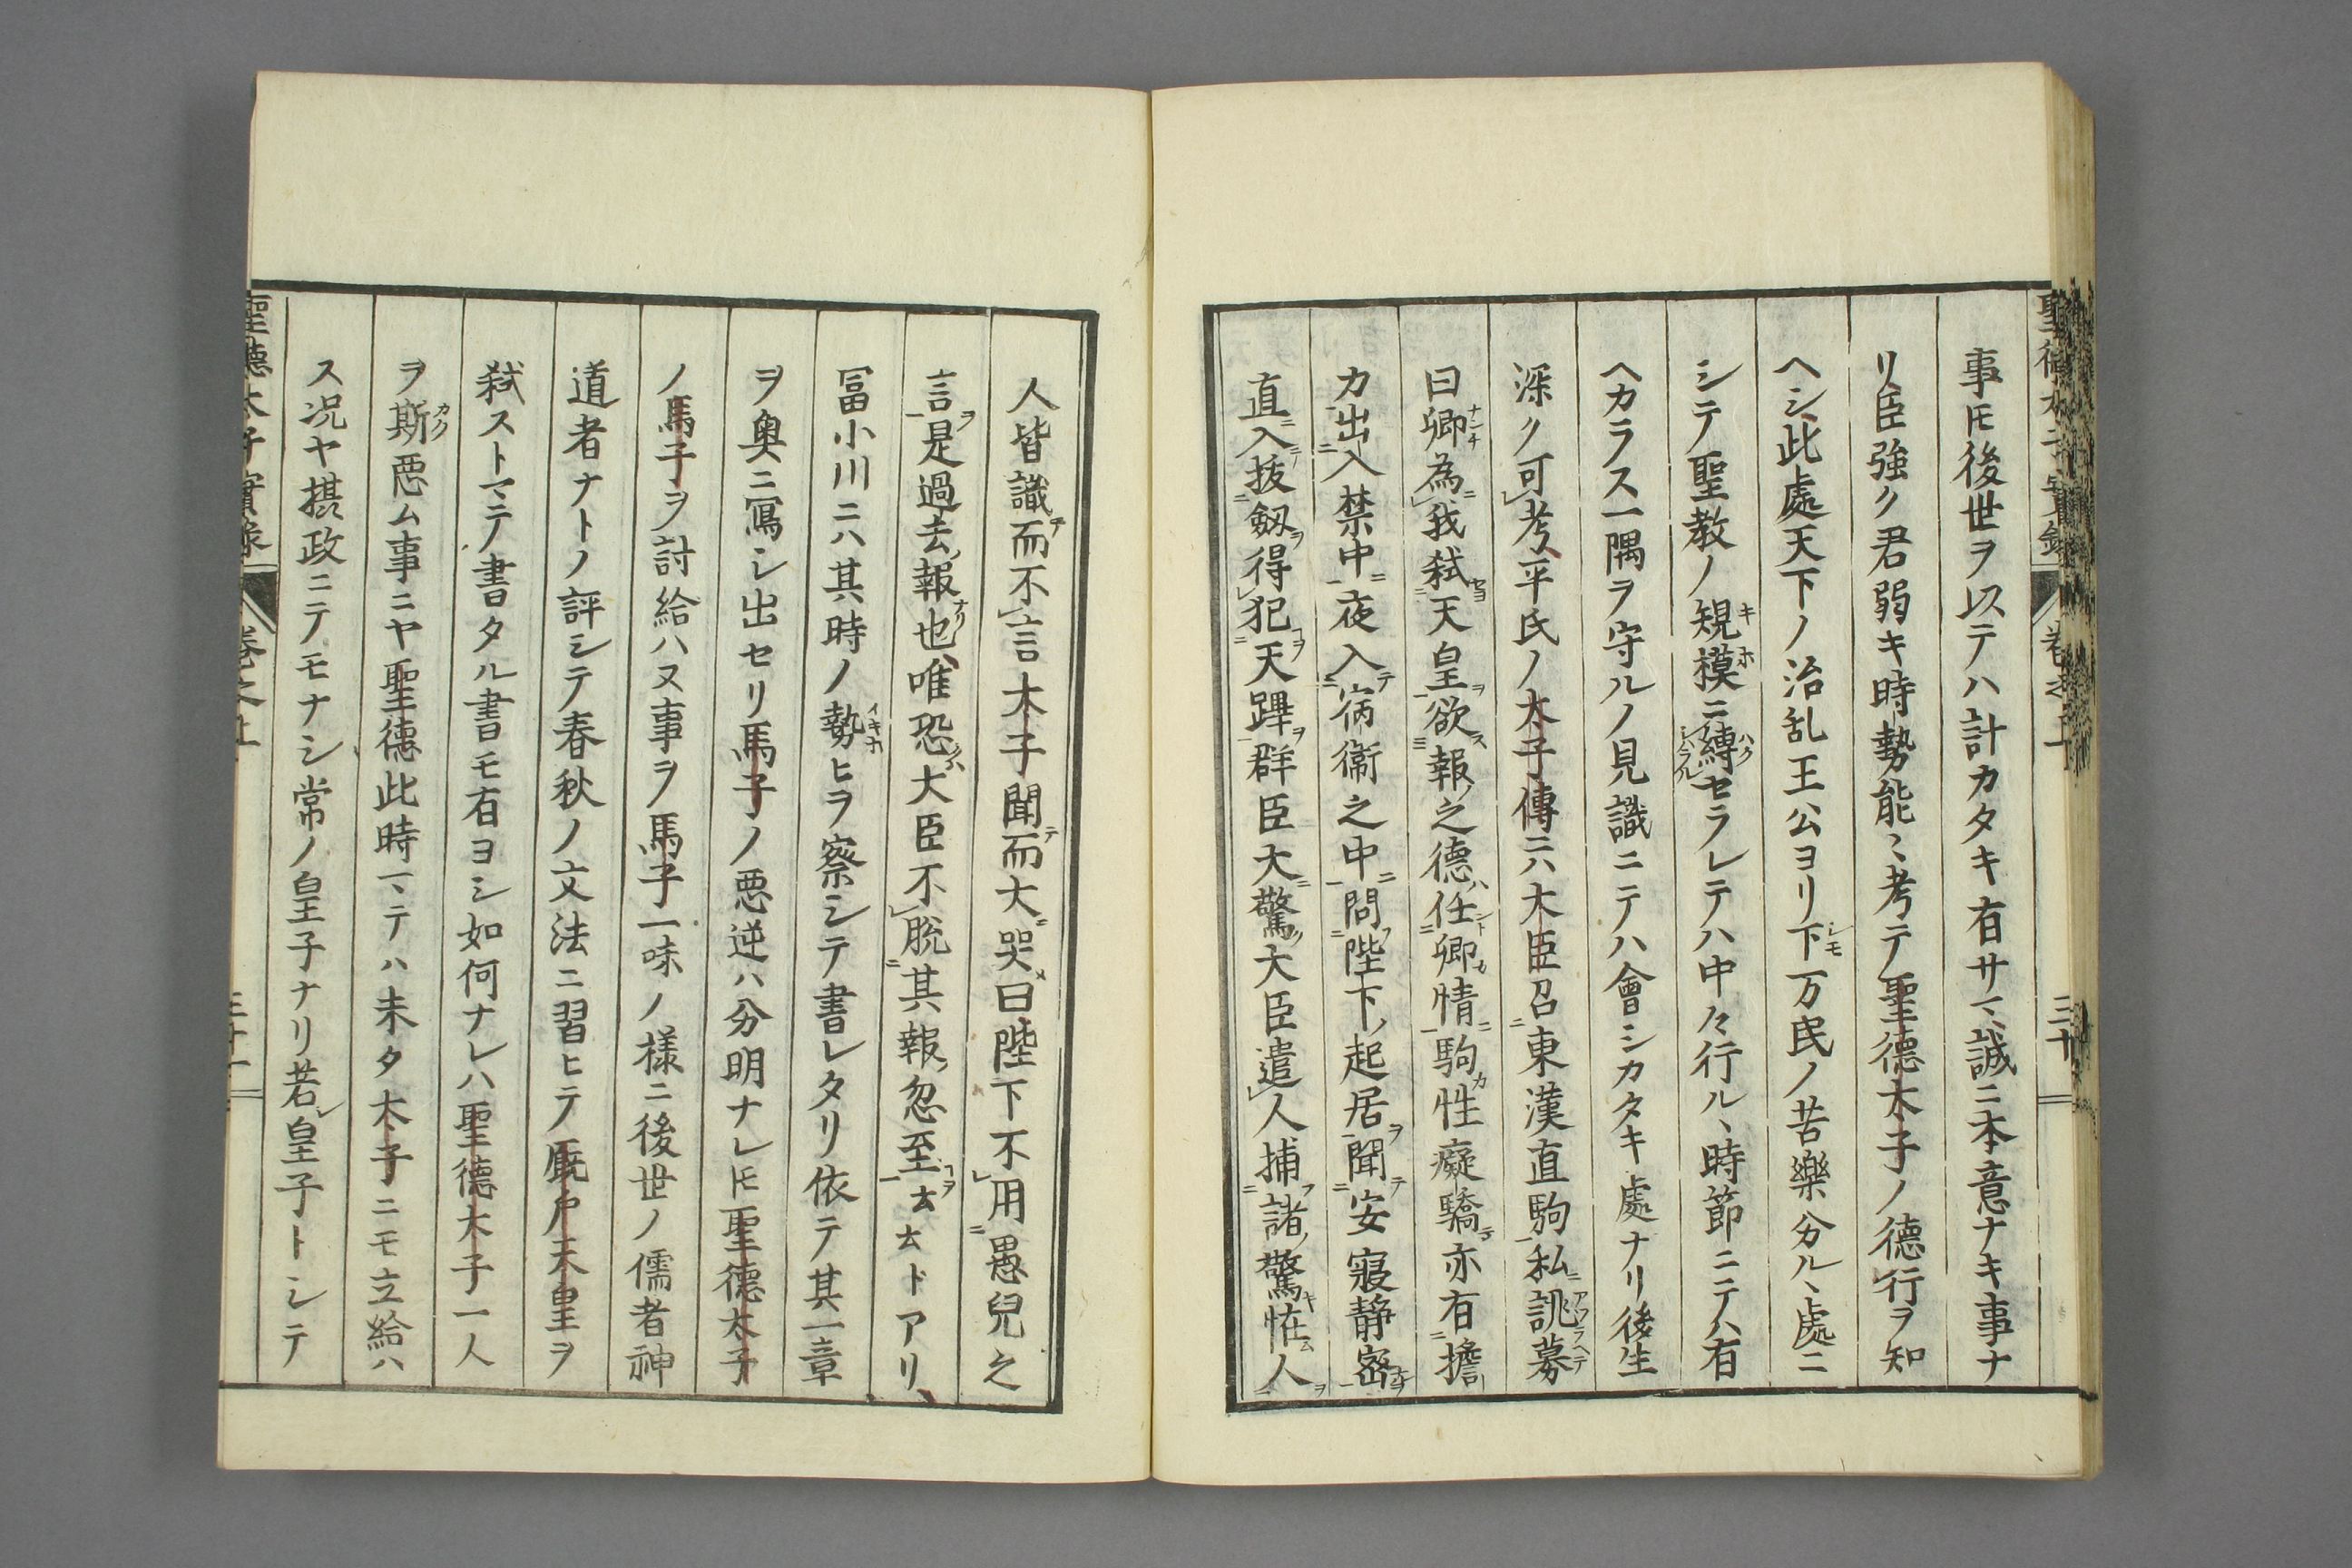 聖德太子實錄 卷之上 三十
事𪜈後世ヲ以テハ計カタキ有サマ、誠ニ本意ナキ事ナ
リ臣強ク君弱キ時勢能々考テ聖德太子ノ德行ヲ知
ヘシ、此處天下ノ治乱王公ヨリ下万民ノ苦樂分ル、處ニ
シテ聖教ノ規模ニ縛セラレテハ中々行ル、時節ニテハ有
ヘカラス一隅ヲ守ルノ見識ニテハ會シカタキ處ナリ後生
深ク可考、平氏ノ太子傳ニハ大臣召東漢直駒私誂募
曰卿為我弑天皇欲報之德任卿情駒性癡驕亦有擔
力出入禁中夜入宿衞之中問陛下起居聞安寢静密
直入抜劔得犯天蹕群臣大驚大臣遣人捕諸驚怪人
人皆識而不言太子聞而大哭曰陛下不用愚兒之
言是過去報也唯恐大臣不脱其報忽至ㄊㄊドアリ、
冨小川ニハ其時ノ勢ヒヲ察シテ書レタリ依テ其一章
ヲ奥ニ寫シ出セリ馬子ノ悪逆ハ分明ナレ𪜈聖德太子
ノ馬子ヲ討給ハヌ事ヲ馬子一味ノ様ニ後世ノ儒者神
道者ナトノ評シテ春秋ノ文法ニ習ヒテ厩戸天皇ヲ
弑ストマテ書タル書モ有ヨシ如何ナレハ聖德太子一人
ヲ斯悪ム事ニヤ聖德此時マテハ未タ太子ニモ立給ハ
ス况ヤ摂政ニテモナシ常ノ皇子ナリ若皇子トシテ
聖德太子實錄 卷之上 三十一